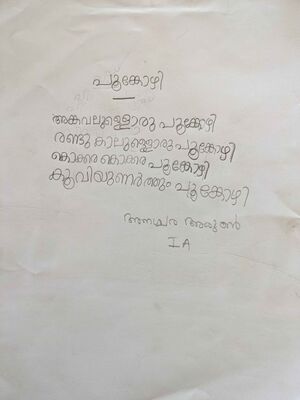 പൂങ്കോഴി
അങ്കവാലുള്ളൊരു പൂങ്കോഴി
രണ്ടു കാലുള്ളൊരു പൂങ്കോഴി
കൊക്കര കൊക്കര പൂങ്കോഴി
കൂവിയുണർത്തും പൂങ്കോഴി
അരുൺ
I A